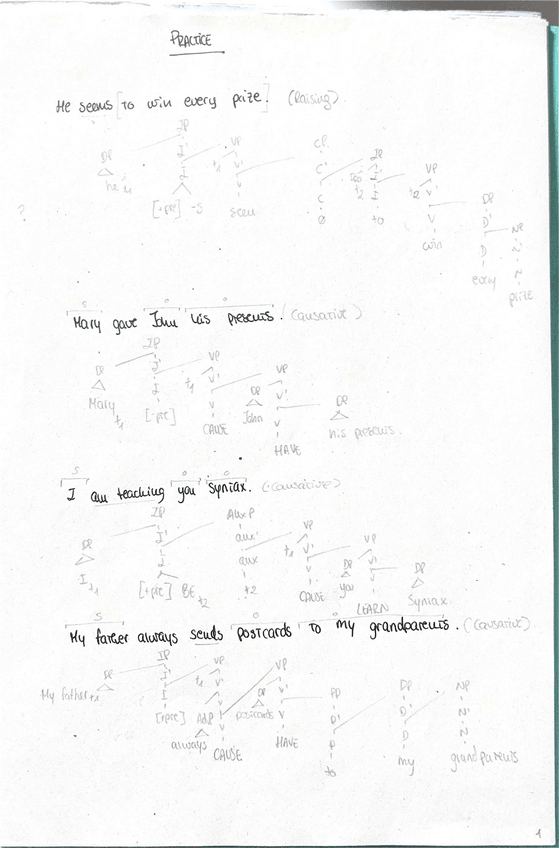 PRACTICE
He seems [to win every prize]. (Raising)
IP
DP I' VP CP IP
he I t1 V' C' I' VP
I V C I t2 V' DP
[+pre] -s seem Ø to V D' NP
? win D N'
every N
prize
S O O
Mary gave John his presents. (Causative)
IP
DP I' VP
Mary t1 I t1 V' DP VP DP
[-pre] V John V' his presents.
CAUSE V
HAVE
S O O
I am teaching you syntax. (causative)
IP AuxP
DP I' aux' VP
I t1 I aux t1 V' VP
[+pre] BE t2 t2 V DP V' DP
CAUSE you V syntax
LEARN
S O O
My father always sends postcards to my grandparents. (causative)
IP VP VP
DP I' t1 V' DP V' PP DP NP
My father t1 I V postcards V D' N'
[+pre] AdvP HAVE D N
always to my grandparents
CAUSE
1